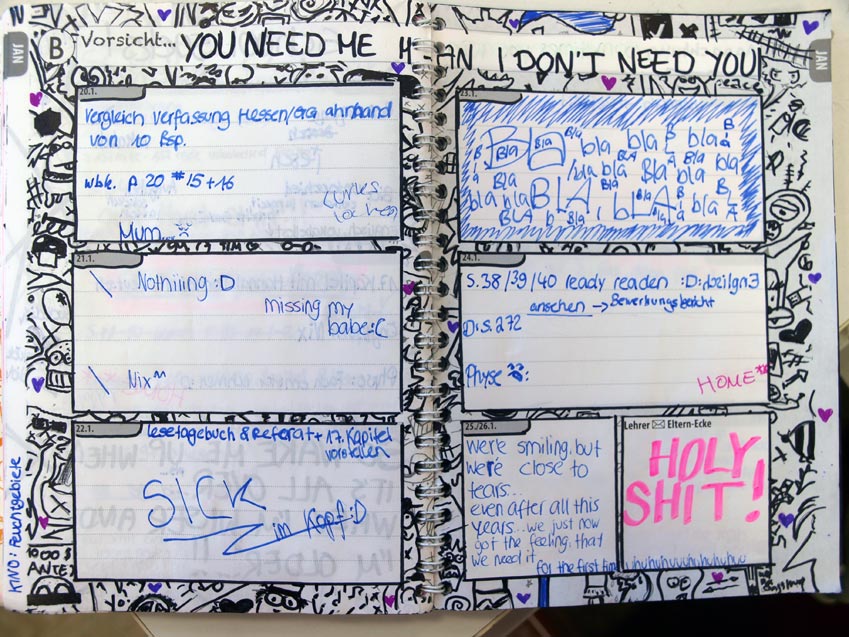 JAN
B
Vorsicht... YOU NEED ME
AN I DON'T NEED YOU
JAN
20.1.
Vergleich Verfassung Hessen/GG ahnhand
von 10 Bsp.
wbk. p. 20 #15+16
Mum...
21.1.
Nothiiing :D
missing my
babe :(
Nix^^
22.1.
Lesetagebuch & Referat + 17. Kapitel
vorstellen
SICK
im Kopf :D
KINO: Feuchtgebiete
1000 $
ANTE
23.1.
Bla Bla bla bla bla
Bla bla Bla Bla
bla bla BLA bLA bla
BLA
24.1.
S. 38/39/40 ready readen :D
ansehen → Bewerkungsbericht
D: S. 272
Physe :
HOME**
25./26.1.
We're smiling, but
we're close to
tears...
even after all this
years... we just now
got the feeling, that
we need it
for the first time
Lehrer Eltern-Ecke
HOLY
SHIT!